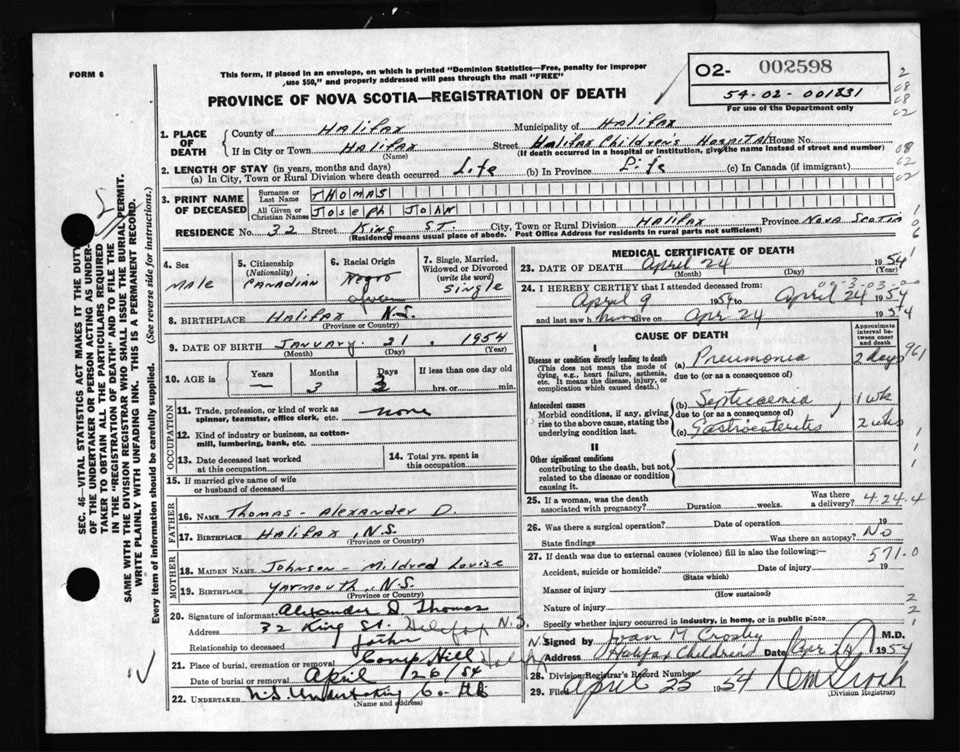 FORM 6
This form, if placed in an envelope, on which is printed "Dominion Statistics—Free, penalty for improper
use $50," and properly addressed will pass through the mail "FREE"
PROVINCE OF NOVA SCOTIA—REGISTRATION OF DEATH
O2- 002598
54-02-001831
For use of the Department only
2
08
08
02
1. PLACE OF DEATH
County of Halifax Municipality of Halifax
If in City or Town Halifax Street Halifax Children's Hospital House No.
(Name) (If death occurred in a hospital or institution, give the name instead of street and number)
08
02
02
2. LENGTH OF STAY (in years, months and days)
(a) In City, Town or Rural Division where death occurred Life (b) In Province Life (c) In Canada (if immigrant)
3. PRINT NAME OF DECEASED
Surname or Last Name THOMAS
All Given or Christian Names JOSEPH JOHN
RESIDENCE No. 32 Street King ST. City, Town or Rural Division HALIFAX Province NOVA SCOTIA
(Residence means usual place of abode. Post Office Address for residents in rural parts not sufficient)
4. Sex
MALE
5. Citizenship (Nationality)
CANADIAN
6. Racial Origin
Negro
7. Single, Married, Widowed or Divorced (write the word)
Single
8. BIRTHPLACE Halifax N.S.
(Province or Country)
9. DATE OF BIRTH JANUARY 21, 1954
(Month) (Day) (Year)
10. AGE in
Years —
Months 3
Days 3
If less than one day
hrs. or min.
OCCUPATION
11. Trade, profession, or kind of work as
spinner, teamster, office clerk, etc. none
12. Kind of industry or business, as cotton-
mill, lumbering, bank, etc.
13. Date deceased last worked
at this occupation
14. Total yrs. spent in
this occupation
15. If married give name of wife
or husband of deceased
FATHER
16. NAME Thomas - Alexander D.
17. BIRTHPLACE Halifax, N.S.
(Province or Country)
MOTHER
18. MAIDEN NAME Johnson - Mildred Louise
19. BIRTHPLACE Yarmouth, N.S.
(Province or Country)
20. Signature of informant Alexander D Thomas
Address 32 King St. Halifax N.S.
Relationship to deceased father
21. Place of burial, cremation or removal Camp Hill Halifax
Date of burial or removal April 26/54
22. UNDERTAKER N.S. Undertaking Co Ltd
(Name and address)
MEDICAL CERTIFICATE OF DEATH
23. DATE OF DEATH April 24 1954
(Month) (Day) (Year)
00-3-03-00
24. I HEREBY CERTIFY that I attended deceased from:
April 9 1954 to April 24 1954
and last saw him alive on Apr 24 1954
CAUSE OF DEATH
Approximate interval between onset and death
I
Disease or condition directly leading to death
(This does not mean the mode of dying, e.g., heart failure, asthenia, etc. It means the disease, injury, or complication which caused death.)
(a) Pneumonia 2 days
due to (or as a consequence of)
961
Antecedent causes
Morbid conditions, if any, giving rise to the above cause, stating the underlying condition last.
(b) Septicaemia 1 wk
due to (or as a consequence of)
(c) Gastroenteritis 2 wks
II
Other significant conditions
contributing to the death, but not related to the disease or condition causing it.
25. If a woman, was the death
associated with pregnancy? Duration weeks. Was there a delivery?
4.24.4
26. Was there a surgical operation? Date of operation 19
State findings Was there an autopsy? No
27. If death was due to external causes (violence) fill in also the following:—
571.0
Accident, suicide or homicide? Date of injury 19
(State which)
Manner of injury
(How sustained)
Nature of injury
Specify whether injury occurred in industry, in home, or in public place
Signed by Joan M Crosby M.D.
Address Halifax Childrens Date Apr 24 1954
28. Division Registrar's Record Number
29. Filed April 25 1954
(Division Registrar)
SEC. 46—VITAL STATISTICS ACT MAKES IT THE DUTY
OF THE UNDERTAKER OR PERSON ACTING AS UNDER-
TAKER TO OBTAIN ALL THE PARTICULARS REQUIRED
IN THE "REGISTRATION OF DEATH" AND TO FILE THE
SAME WITH THE DIVISION REGISTRAR WHO SHALL ISSUE THE BURIAL PERMIT.
WRITE PLAINLY WITH UNFADING INK. THIS IS A PERMANENT RECORD.
Every item of information should be carefully supplied. (See reverse side for instructions.)